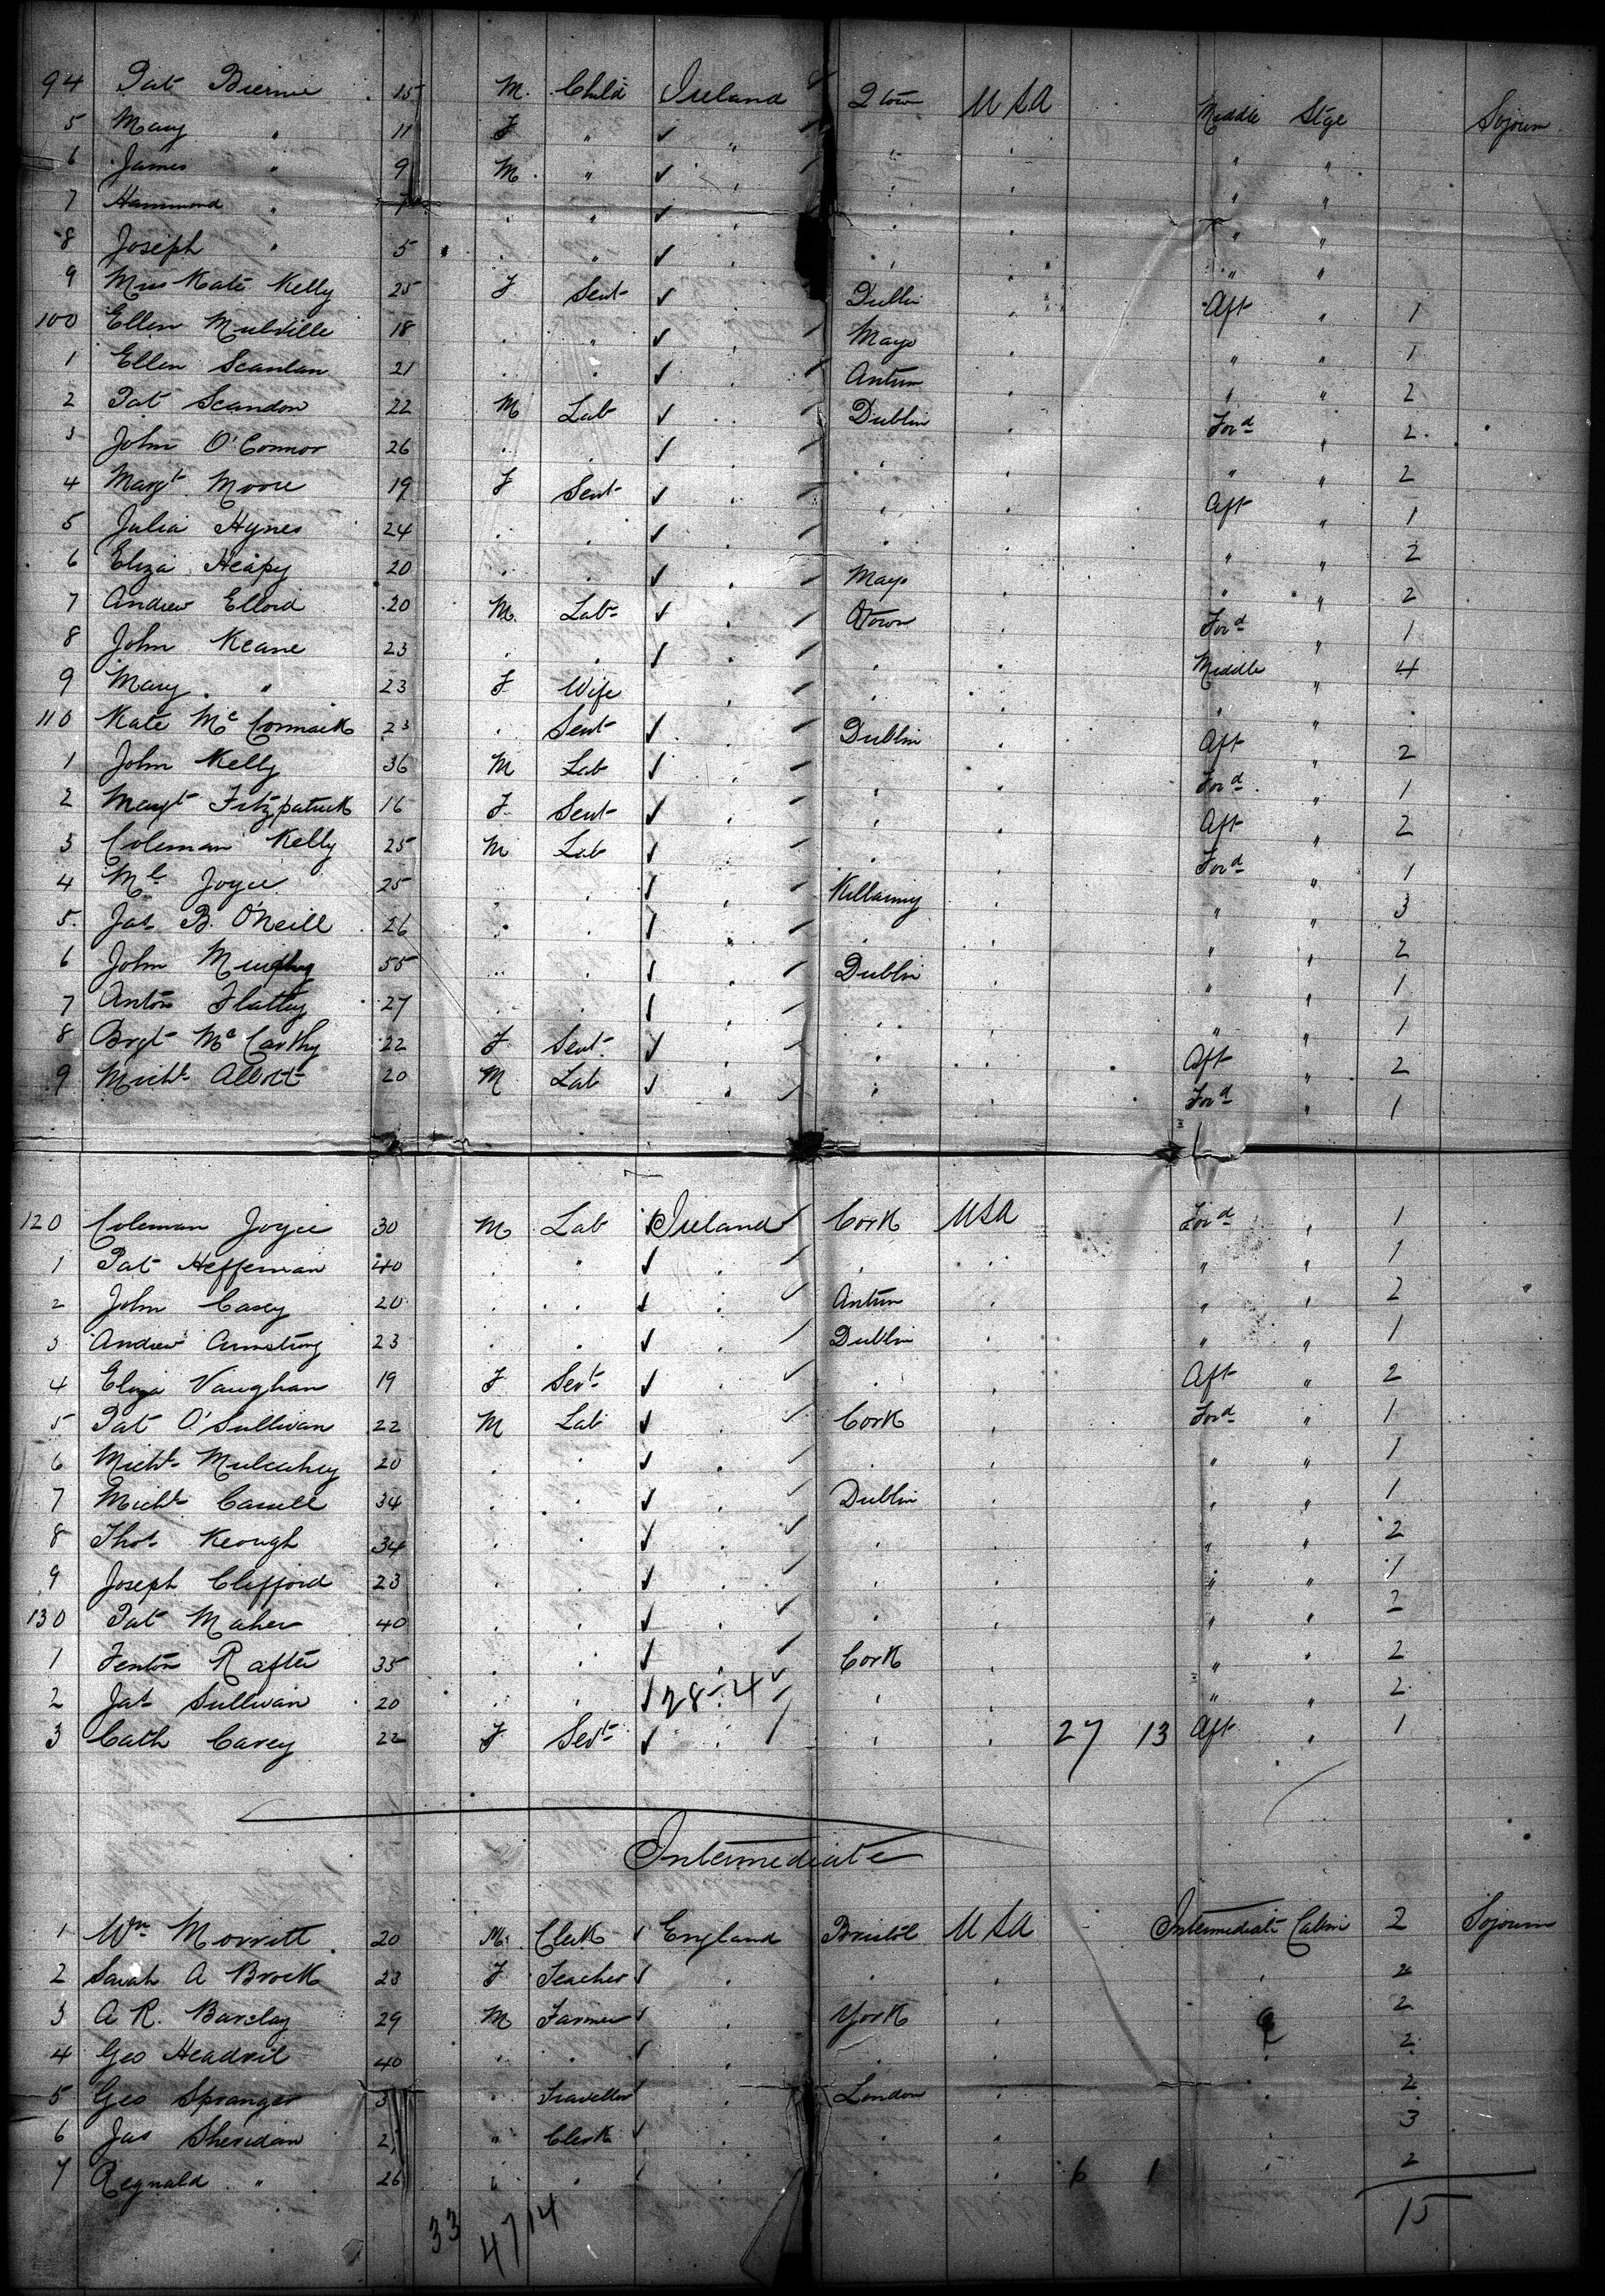 94 Pat Bierne 15 M. Child Ireland Qtown USA Middle Stge Sojourn
5 Mary " 11 F " ✓ " " " " "
6 James " 9 M. " ✓ " " " " "
7 Hammond " 7 " " ✓ " " " " "
8 Joseph " 5 " " ✓ " " " " "
9 Miss Kate Kelly 25 F Servt ✓ " Dublin " Aft " 1
100 Ellen Mulville 18 " " ✓ " Mayo " " " 1
1 Ellen Scanlan 21 " " ✓ " Antrim " " " 2
2 Pat Scandon 22 M Lab ✓ " Dublin " Ford " 2
3 John O'Connor 26 " " ✓ " " " " " 2
4 Margt Moore 19 F Servt ✓ " " " Aft " 1
5 Julia Hynes 24 " " ✓ " " " " " 2
6 Eliza Heapy 20 " " ✓ " Mayo " " " 2
7 Andrew Elloid 20 M. Lab ✓ " Qtown " Ford " 1
8 John Keane 23 " " ✓ " " " Middle " 4
9 Mary " 23 F Wife " " " " " "
110 Kate McCormack 23 " Servt ✓ " Dublin " Aft " 2
1 John Kelly 36 M Lab ✓ " " " Ford " 1
2 Margt Fitzpatrick 16 F Servt ✓ " " " Aft " 2
3 Coleman Kelly 25 M Lab ✓ " " " Ford " 1
4 Ml Joyce 25 " " ✓ " Killarny " " " 3
5 Jas B. O'Neill 26 " " ✓ " " " " " 2
6 John Murphy 55 " " ✓ " Dublin " " " 1
7 Anton Flatley 27 " " ✓ " " " " " 1
8 Brgt McCarthy 22 F Servt ✓ " " " Aft " 2
9 Michl Abbott 20 M Lab ✓ " " " Ford " 1
120 Coleman Joyce 30 M Lab ✓ Ireland Cork USA Ford " 1
1 Pat Heffernan 40 " " ✓ " " " " " 1
2 John Casey 20 " " ✓ " Antrim " " " 2
3 Andrew Armstrong 23 " " ✓ " Dublin " " " 1
4 Eliza Vaughan 19 F Servt ✓ " " " Aft " 2
5 Pat O'Sullivan 22 M Lab ✓ " Cork " Ford " 1
6 Michl Mulcahey 20 " " ✓ " " " " " 1
7 Michl Casell 34 " " ✓ " Dublin " " " 1
8 Thos Keough 34 " " ✓ " " " " " 2
9 Joseph Clifford 23 " " ✓ " " " " " 1
130 Pat Maher 40 " " ✓ " " " " " 2
1 Fenton Rafter 35 " " ✓ " Cork " " " 2
2 Jas Sullivan 20 " " ✓ 28-4 " " " " 2
3 Cath Carey 22 F Servt ✓ " " " 27 13 Aft " 1
Intermediate
1 Wm Morritt 20 M. Clerk ✓ England Bristol USA Intermediate Cabin 2 Sojourn
2 Sarah A Brock 23 F Teacher ✓ " " " " 2
3 A R. Barclay 29 M Farmer ✓ " York " 2
4 Geo Headril 40 " " ✓ " " " " 2
5 Geo Spranger 3 " Traveller ✓ " London " " 2
6 Jas Sheridan 2 " Clerk ✓ " " " " 3
7 Regnald " 26 " " ✓ " " " 6 1 " 2
33 47 14 15